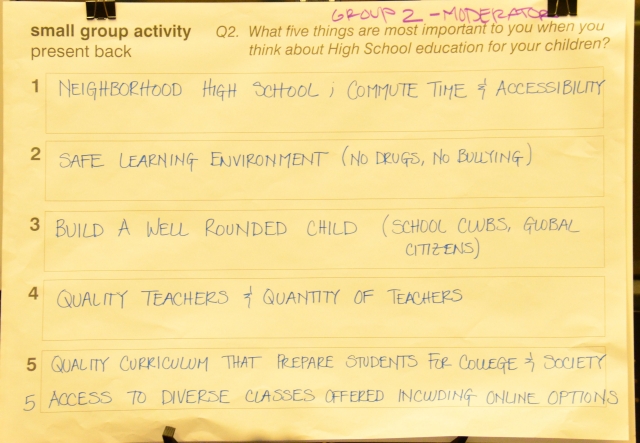 GROUP 2 - MODERATOR
small group activity Q2. What five things are most important to you when you
present back think about High School education for your children?
1 NEIGHBORHOOD HIGH SCHOOL ; COMMUTE TIME & ACCESSIBILITY
2 SAFE LEARNING ENVIRONMENT (NO DRUGS, NO BULLYING)
3 BUILD A WELL ROUNDED CHILD (SCHOOL CLUBS, GLOBAL
CITIZENS)
4 QUALITY TEACHERS & QUANTITY OF TEACHERS
5 QUALITY CURRICULUM THAT PREPARE STUDENTS FOR COLLEGE & SOCIETY
5 ACCESS TO DIVERSE CLASSES OFFERED INCLUDING ONLINE OPTIONS